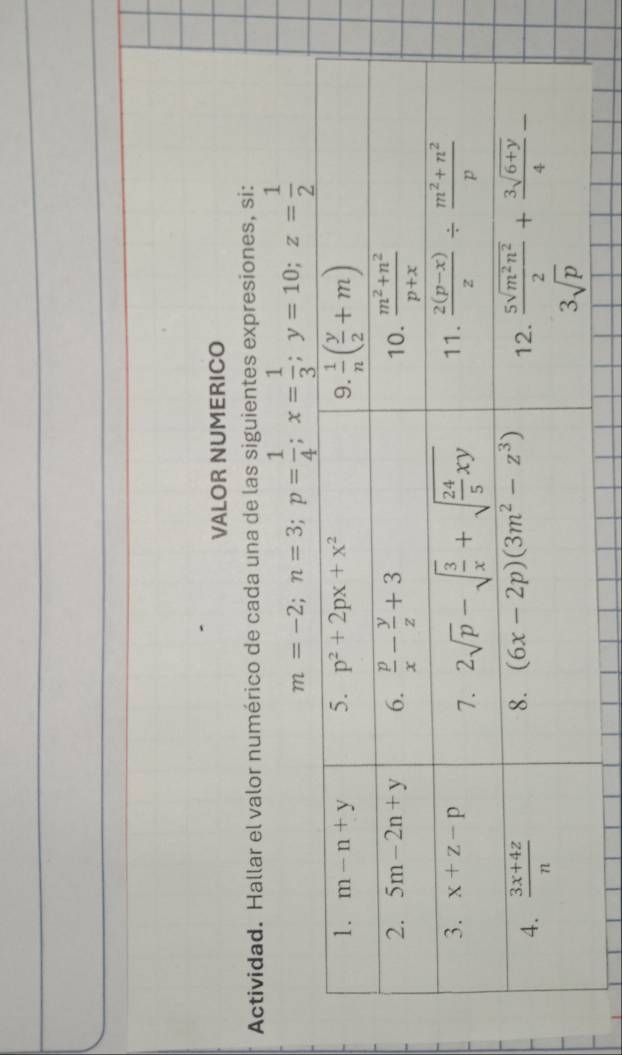 VALOR NUMERICO
Actividad. Hallar el valor numérico de cada una de las siguientes expresiones, si:
m = −2; n = 3; p = 1/4; x = 1/3; y = 10; z = 1/2
1. m − n + y
5. p² + 2px + x²
9. 1/n (y/2 + m)
2. 5m − 2n + y
6. p/x − y/z + 3
10. (m² + n²)/(p + x)
3. x + z − p
7. 2√p − √(3/x) + √(24/5 xy)
11. 2(p−x)/z ÷ (m² + n²)/p
4. (3x+4z)/n
8. (6x − 2p)(3m² − z³)
12. 5√(m²n²)/2 + 3√(6+y)/4 −
3√p